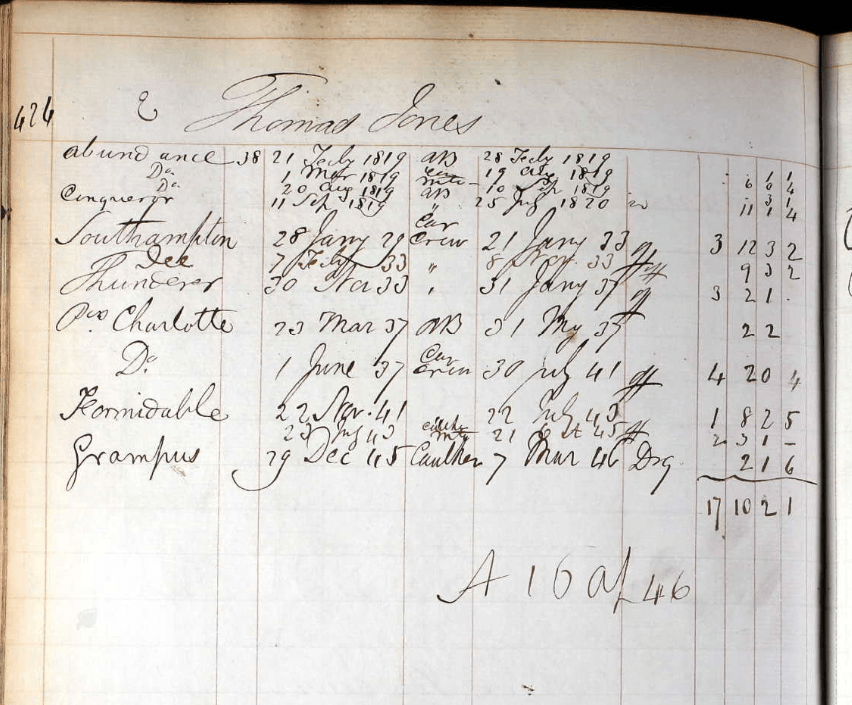 424
E Thomas Jones
Abundance 38 21 Feby 1819 AB 28 Feby 1819
Do 1 Mar 1819 19 1819 1 1
Do 20 Aug 1819 mte 10 Sep 1819 6 4
Conqueror 11 Sep 1819 AB 25 July 1820 11 1 4
Southampton 28 Jany 29 Car Crew 21 Jany 33 3 12 3 2
Dee 7 Feby 33 " 8 Nov 33 9 3 2
Thunderer 30 Nov 33 " 31 Jany 37 3 2 1 .
Pss Charlotte 23 Mar 37 AB 31 My 37 2 2
Do 1 June 37 Car Crew 30 July 41 4 2 0 4
Formidable 22 Nov. 41 22 July 43 1 8 2 5
23 July 43 Caulks Mte 21 Oct 45 2 3 1 -
Grampus 29 Dec 45 Caulker 7 Mar 46 Dsq. 2 1 6
17 10 2 1
A 16 of 46